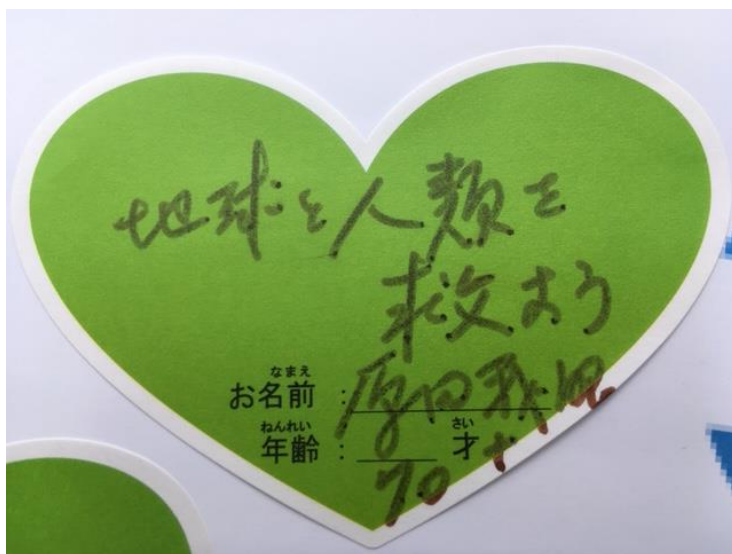 地球と人類を
救おう
なまえ
お名前：原田義昭
ねんれい さい
年齢：　　　才
70才